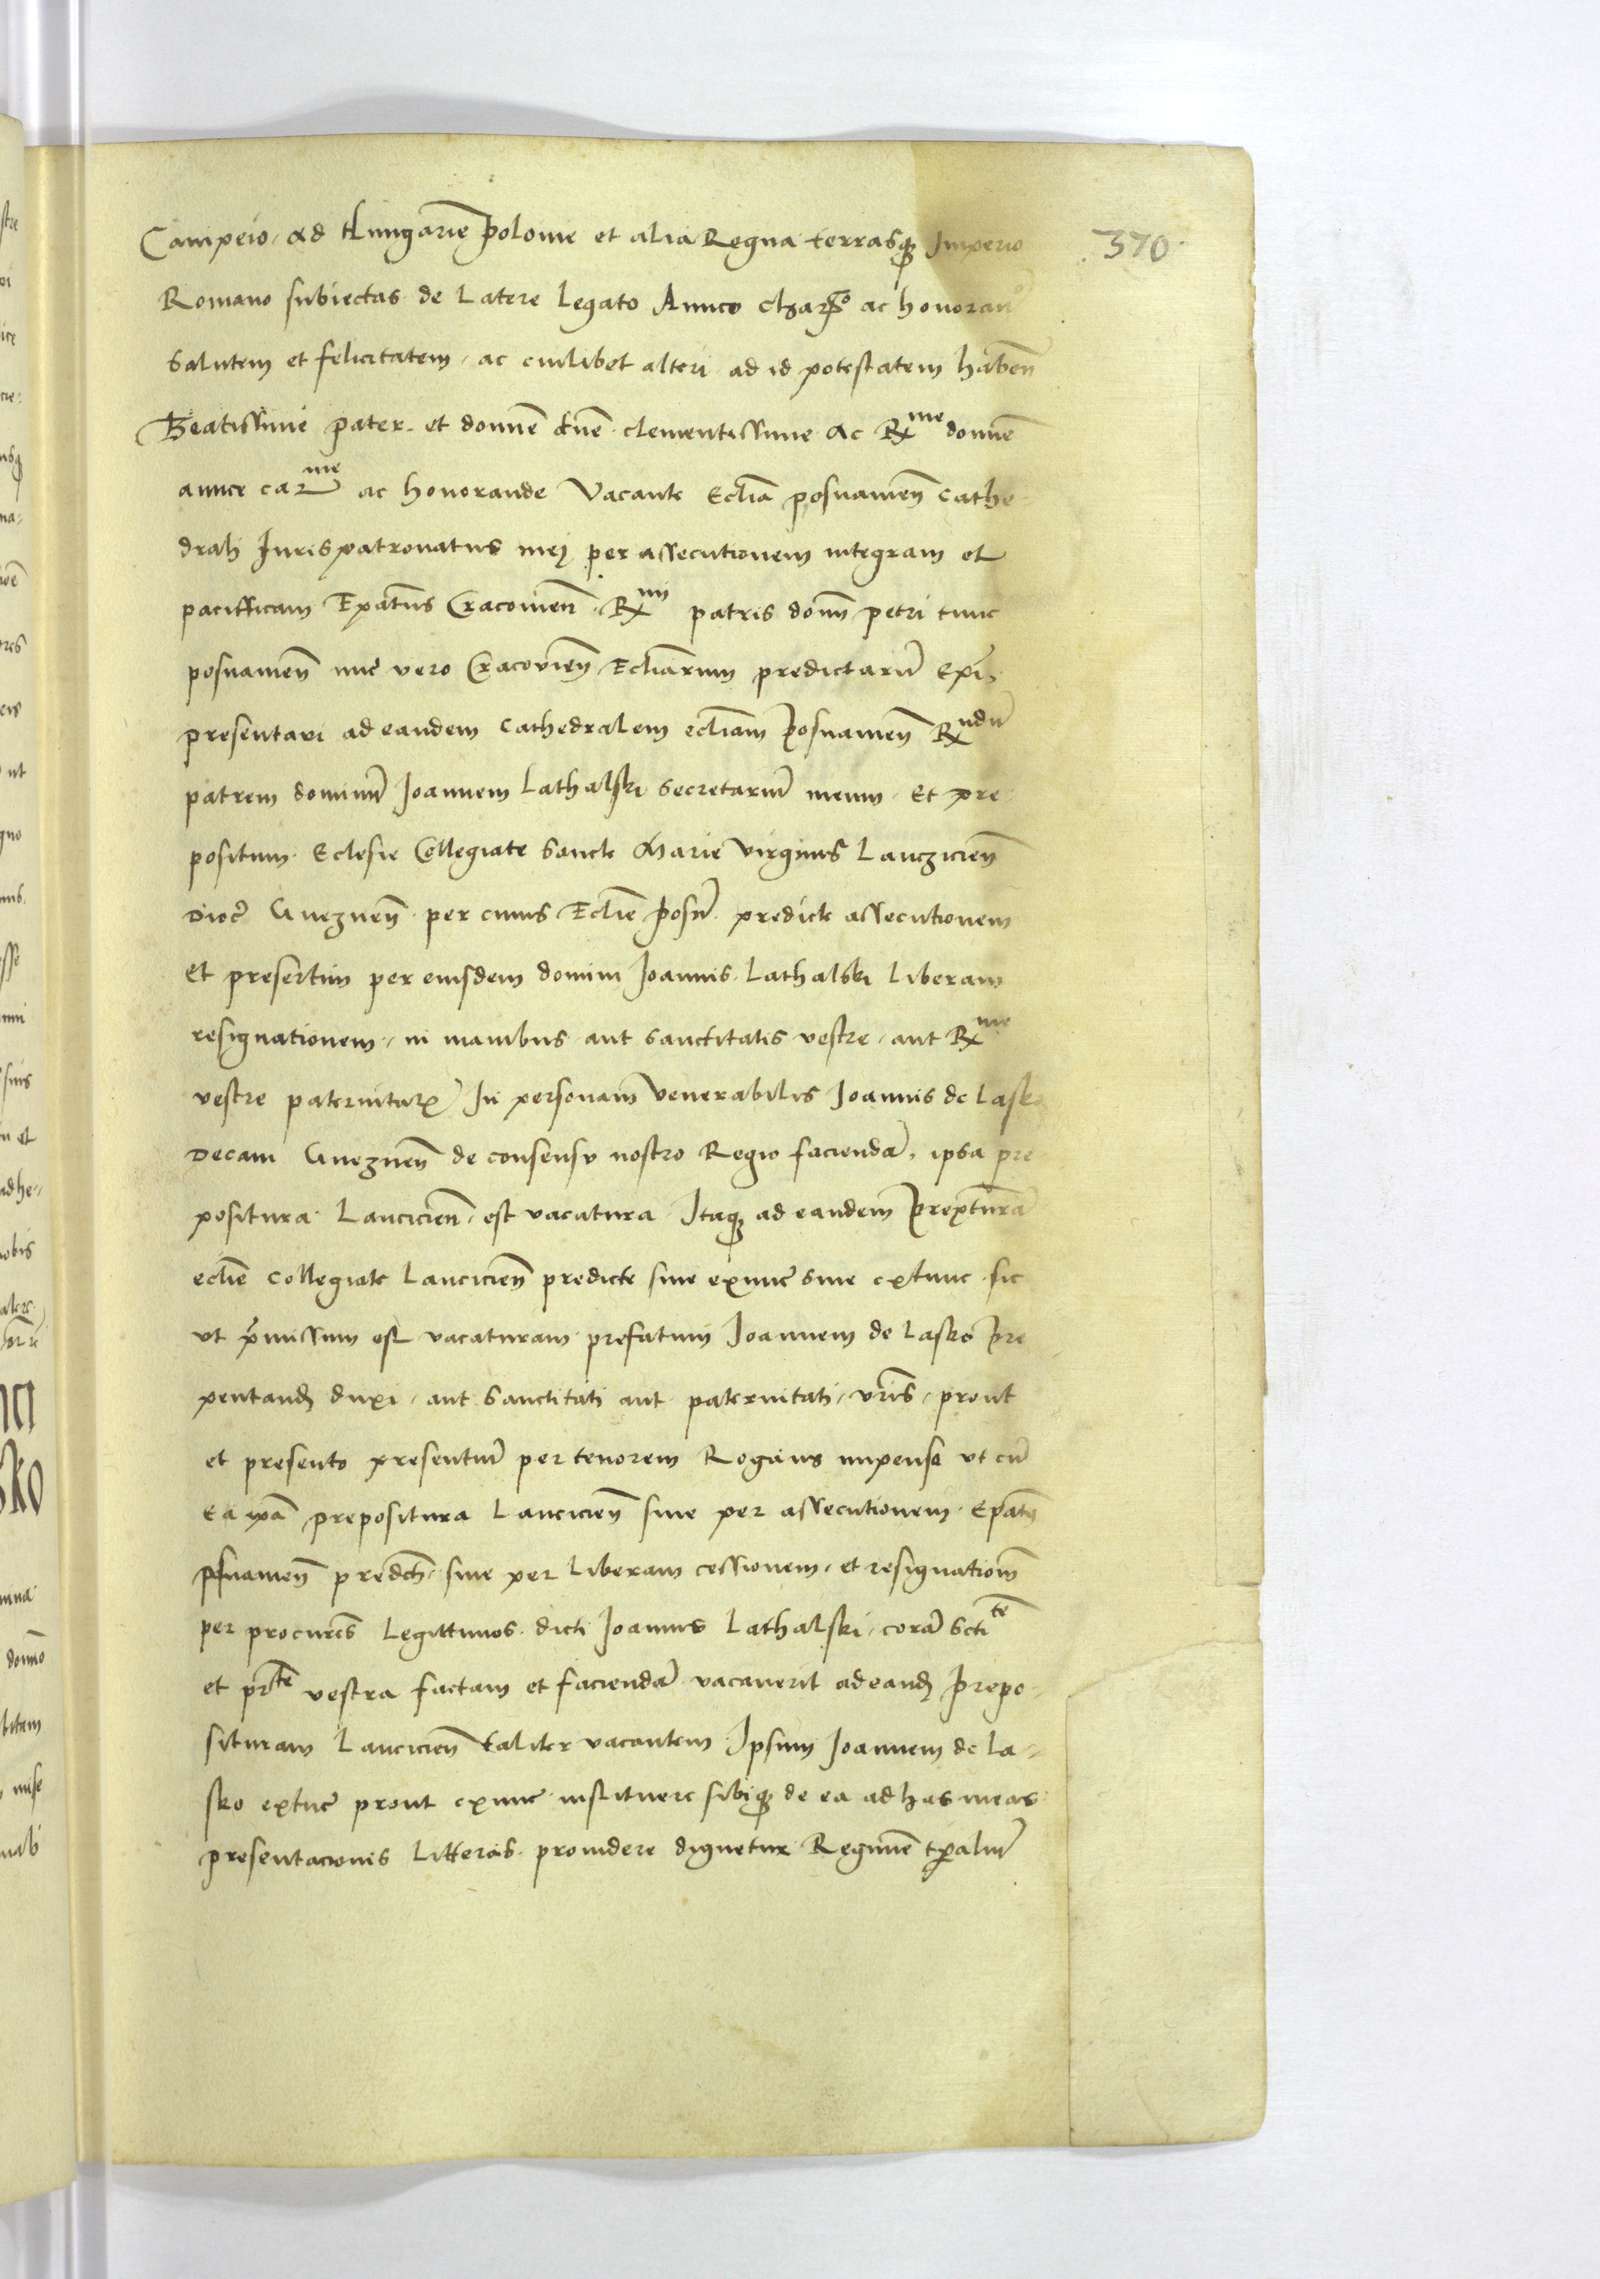 370
Campeio ad Hungarie Polonie et alia Regna terrasq3 Imperio
Romano subiectas de Latere Legato Amico char^mo ac honoran^o
Salutem et felicitatem ac cuilibet alteri ad id potestatem haben̄
Beatissime pater et domine dn̄e clementissime ac R^me domine
amice car^me ac honorande Vacante Eccl̄ia posnamen̄ cathe-
drali Iurispatronatus mei per assecutionem integram et
pacifficam Ep̄atus Cracovien̄ R^mi patris domī petri tunc
posnamen̄ nuc̄ vero Cracovien̄ Eccl̄iarum predictarū Ep̄i
presentavi ad eandem cathedralem eccl̄iam posnamen̄ R^ndū
patrem dominū Joannem Lathalski secretariū meum Et pre
positum Eclesie Collegiate Sancte Marie virginis Lancziciēn
Dioc̄ Gneznen̄ per cuius Eccl̄ie posn̄ predicte assecutionem
et presertim per eiusdem domini Joannis Lathalski Liberam
resignationem in manibus aut sanctitatis vestre aut R^me
vestre paternitatis In personam Venerabilis Joannis de Lasko
Decani Gneznen̄ de consensu nostro Regio faciendā ipsa pre
positura Lancicien̄ est vacatura Itaq3 ad eandem prep̄turā
eccl̄ie collegiate Lancicien̄ predicte sive exnūc sive extunc sic
ut p̄missum est vacaturam prefatum Joannem de Lasko pre
pentand̄ duxi aut Sanctitati aut paternitati vr̄is prout
et presento presentiū per tenorem Rogans impense ut cū
ea ip̄a prepositura Lancicien̄ sive per assecutionem Ep̄atus
psnamen̄ predict̄ sive per Liberam cessionem et resignationē
per procur̄es Legittimos dicti Joannis Lathalski corā Scti^te
et pr̄^te vestra factam et faciendā vacaverit ad eand̄ prepo-
situram Lancicien̄ taliter vacantem Ipsum Joannem de La-
sko extūc prout exnunc instituere sibiq3 de ea ad has meas
presentacionis Litteras providere dignetur Regimen̄ t̄paliū